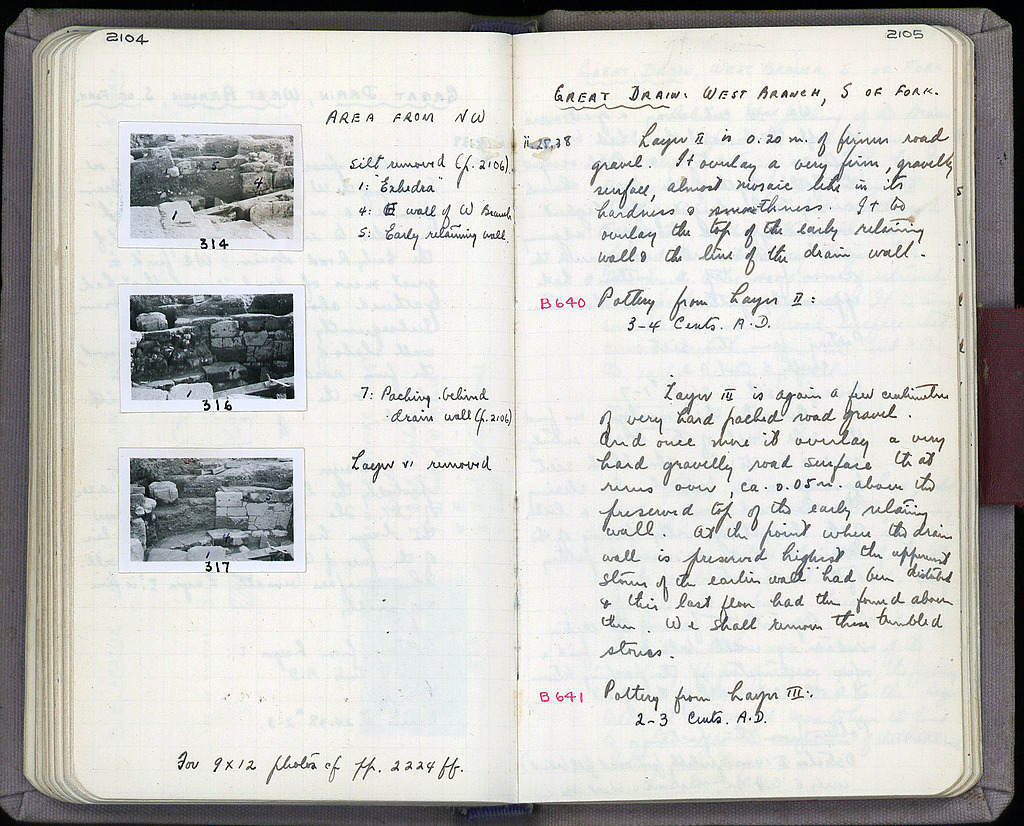 2104
AREA FROM NW
silt removed (p. 2106).
1: "Exhedra"
4: E wall of W Branch
5: Early retaining wall.
5
4
1
314
4
7
316
7: Packing behind
drain wall (p. 2106)
Layer VI removed
5
4
1
317
For 9x12 photos cf. pp. 2224 ff.
2105
GREAT DRAIN: WEST BRANCH, S OF FORK.
Layer II is 0.20 m. of firmer road
gravel. It overlay a very firm, gravelly
surface, almost mosaic like in its
hardness & smoothness. It too
overlay the top of the early retaining
wall & the line of the drain wall.
B 640 Pottery from Layer II:
3-4 Cents. A.D.
Layer III is again a few centimetres
of very hard packed road gravel.
And once more it overlay a very
hard gravelly road surface that
runs over, ca. 0.05 m. above the
preserved top of the early retaining
wall. At the point where the drain
wall is preserved highest the uppermost
stones of the earlier wall had been disturbed
& this last floor had then formed above
them. We shall remove these tumbled
stones.
B 641 Pottery from Layer III:
2-3 Cents. A.D.